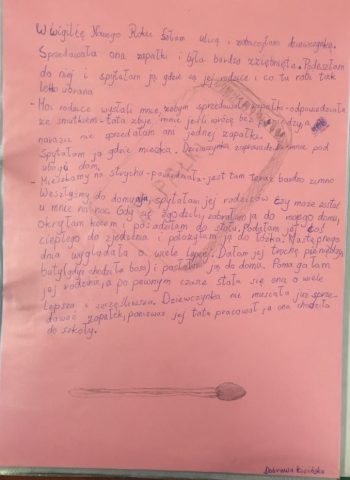 W wigilię Nowego Roku szłam ulicą i zobaczyłam dziewczynkę.
Sprzedawała ona zapałki i była bardzo zziębnięta. Podeszłam
do niej i spytałam ją gdzie są jej rodzice i co tu robi tak
lekko ubrana.
- Moi rodzice wysłali mnie, żebym sprzedawała zapałki - odpowiedziała
ze smutkiem - tata zbije mnie jeśli wrócę bez pieniędzy, a
narazie nie sprzedałam ani jednej zapałki.
Spytałam ją gdzie mieszka. Dziewczynka zaprowadziła mnie pod
ubogi dom.
- Mieszkamy na strychu - powiedziała - jest tam teraz bardzo zimno
Weszłyśmy do domu, spytałam jej rodziców czy może zostać
u mnie na noc. Gdy się zgodzili zabrałam ją do mojego domu,
okryłam kocem i posadziłam do stołu. Podałam jej coś
ciepłego do zjedzenia i położyłam ją do łóżka. Następnego
dnia wyglądała o wiele lepiej. Dałam jej trochę pieniędzy,
buty (gdyż chodziła boso) i posłałam ją do domu. Pomagałam
jej rodzinie, a po pewnym czasie stała się ona o wiele
lepsza i szczęśliwsza. Dziewczynka nie musiała już sprze-
dawać zapałek, ponieważ jej tata pracował, a ona chodziła
do szkoły.
Dobrawa